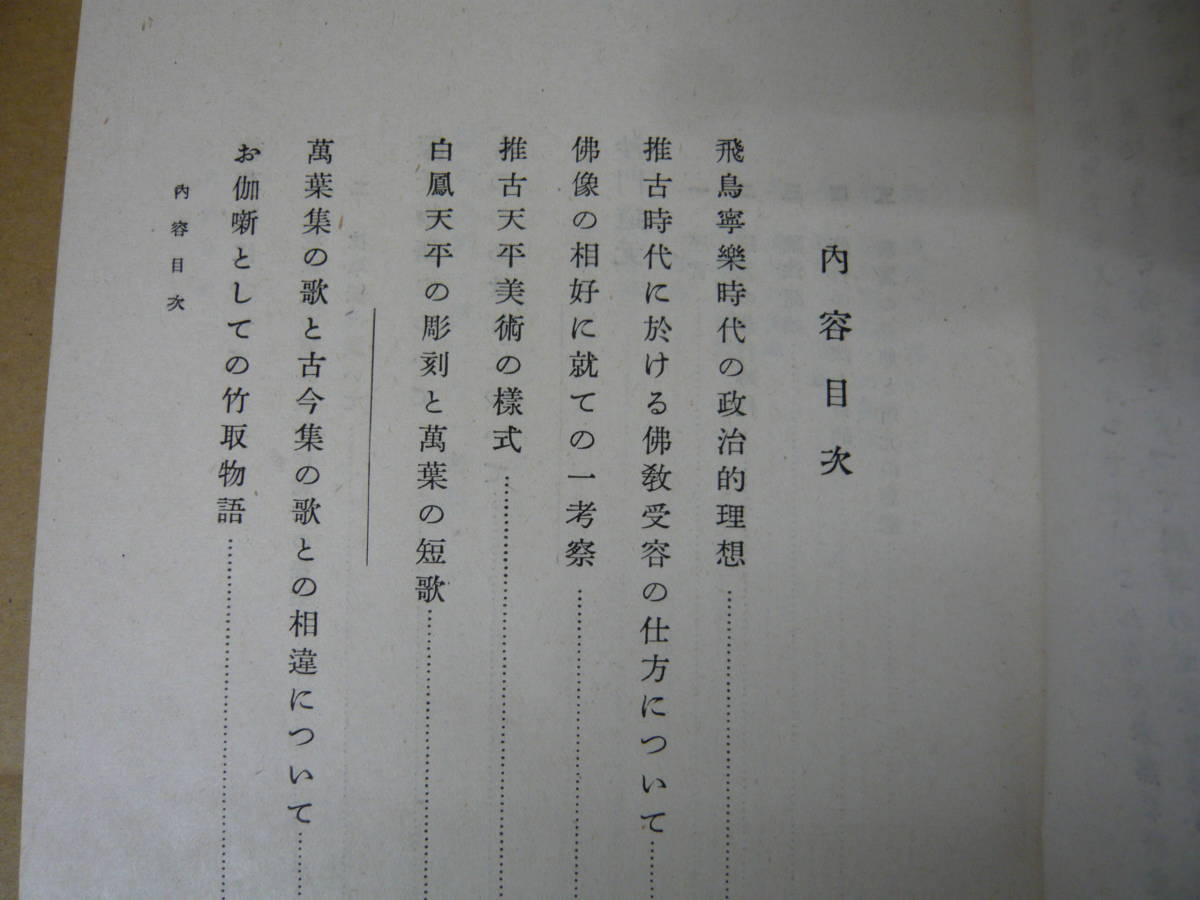 內容目次
飛鳥寧樂時代の政治的理想
推古時代に於ける佛敎受容の仕方について
佛像の相好に就ての一考察
推古天平美術の樣式
白鳳天平の彫刻と萬葉の短歌
萬葉集の歌と古今集の歌との相違について
お伽噺としての竹取物語
內容目次